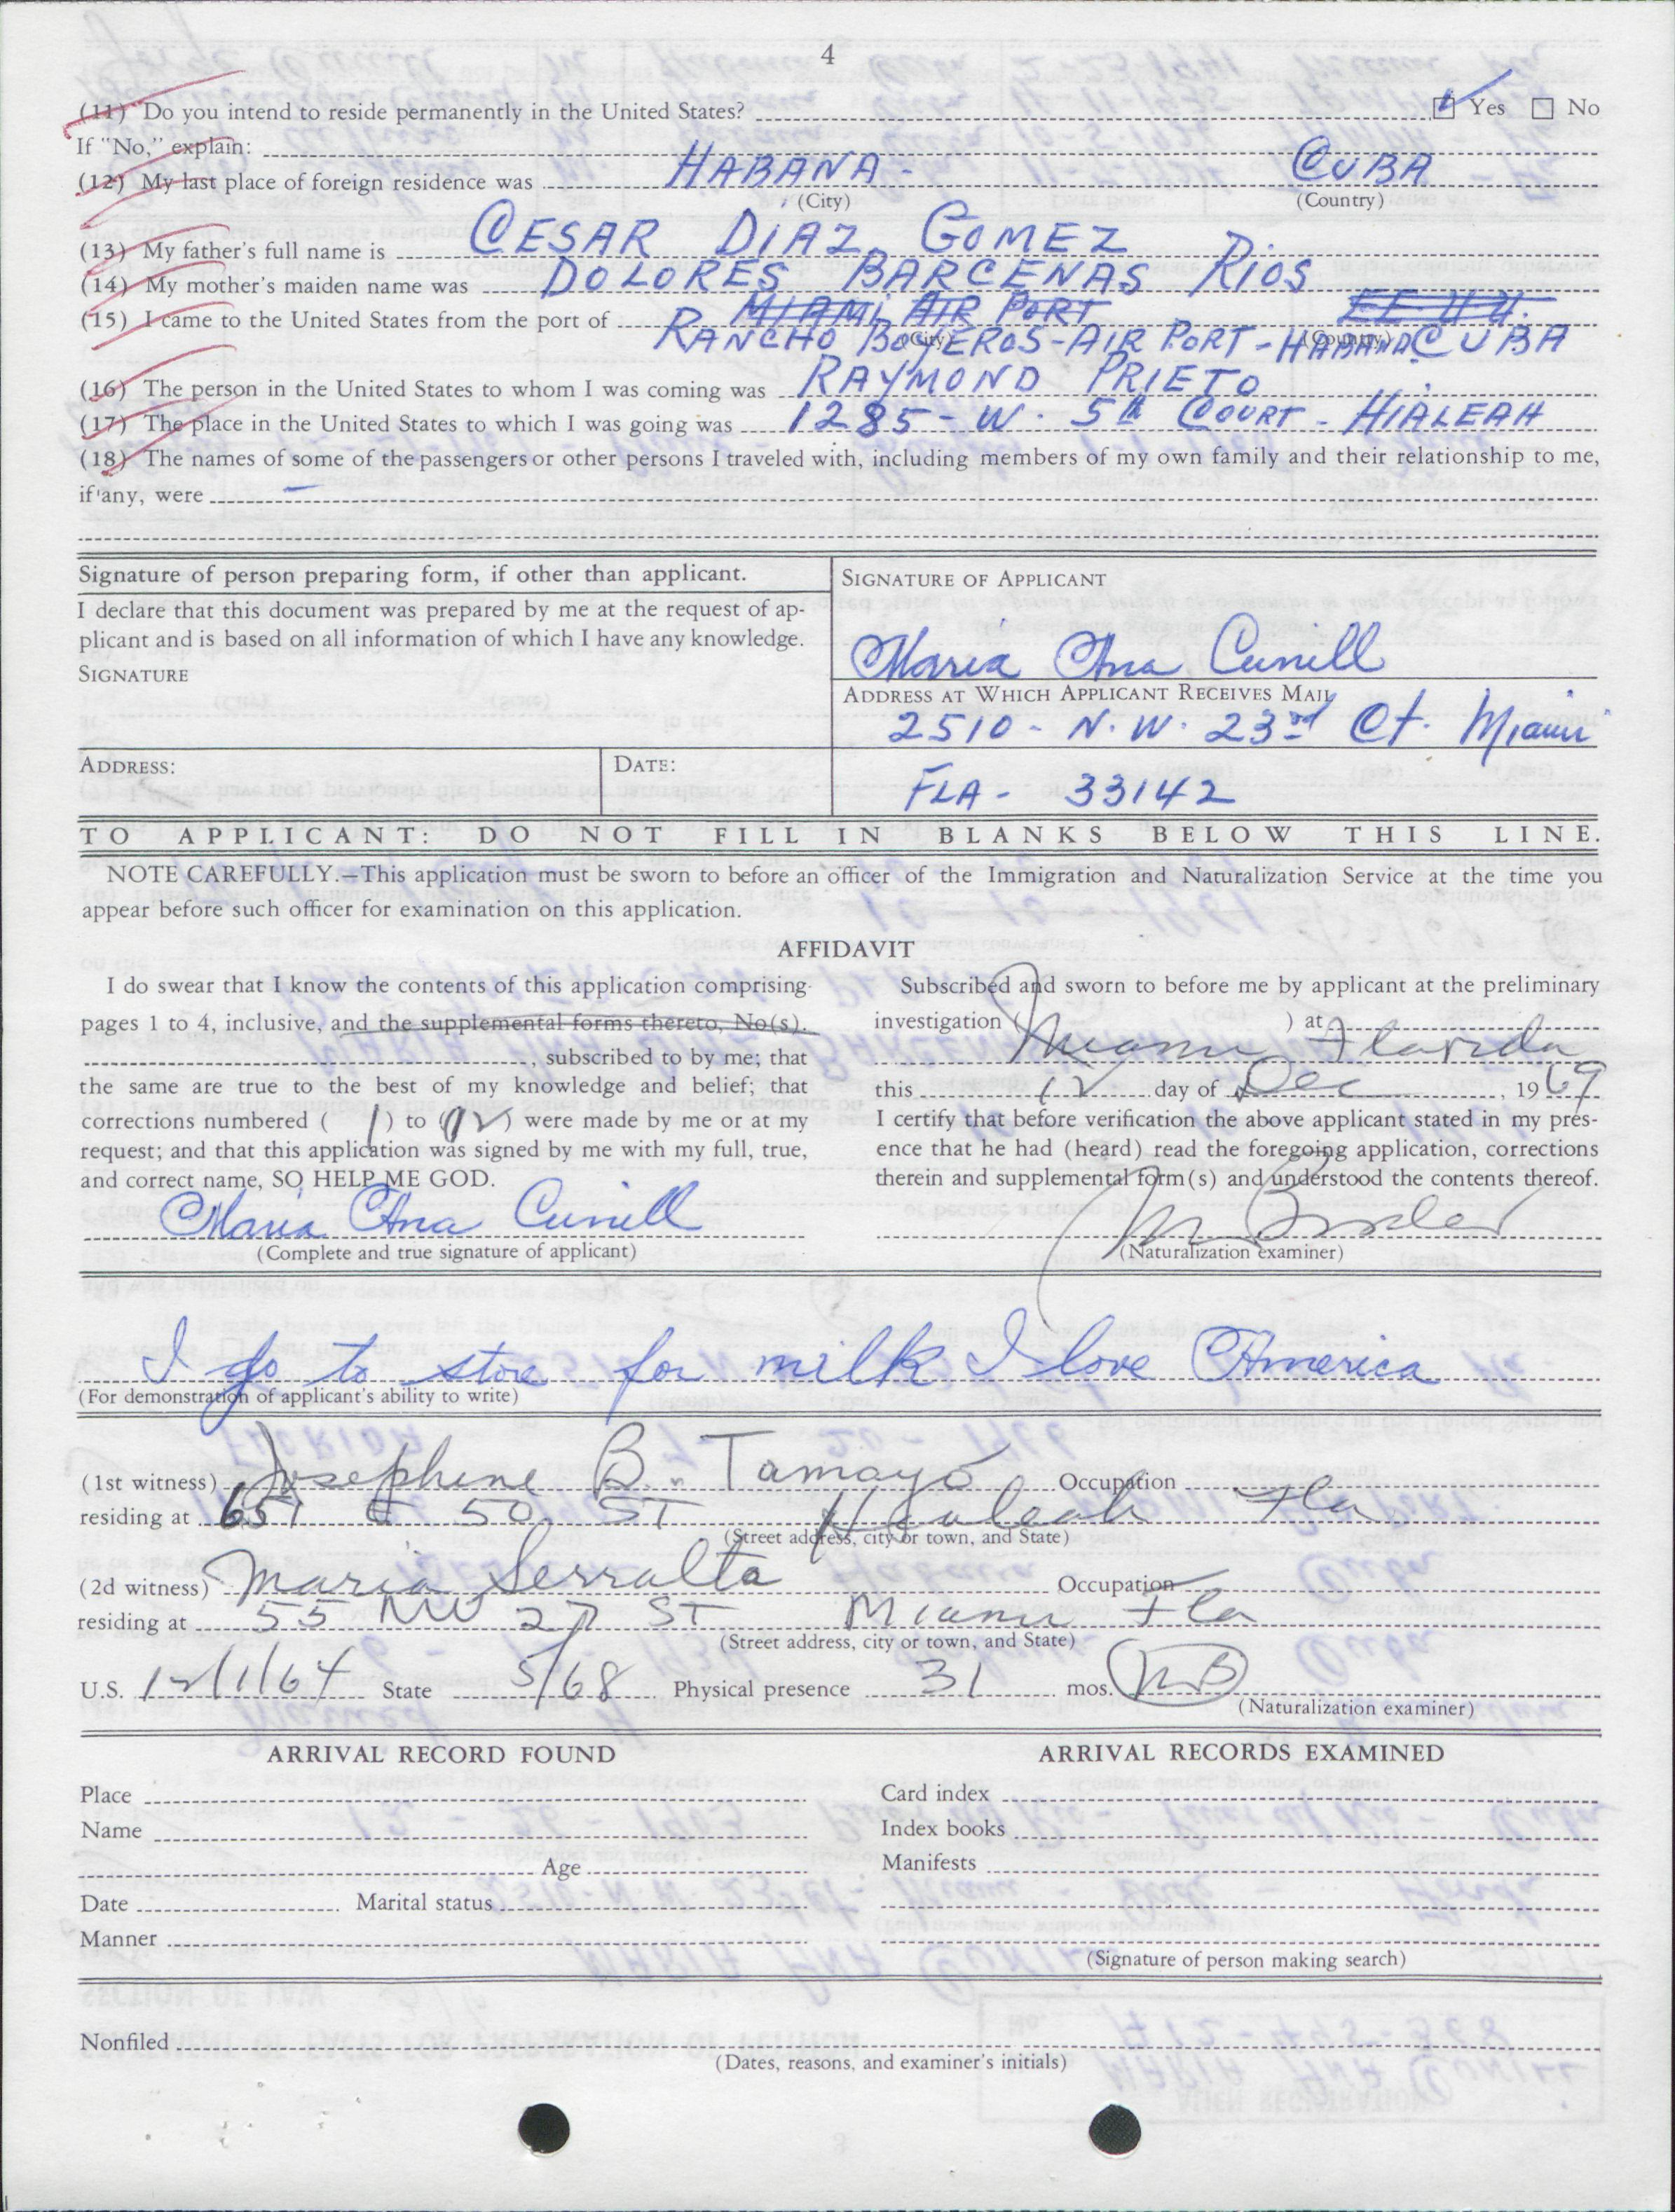 4
(11) Do you intend to reside permanently in the United States? Yes No
If "No," explain:
(12) My last place of foreign residence was HABANA - CUBA
(City) (Country)
(13) My father's full name is CESAR DIAZ GOMEZ
(14) My mother's maiden name was DOLORES BARCENAS RIOS
(15) I came to the United States from the port of MIAMI AIR PORT EE UU.
(City) (Country)
RANCHO BOYEROS - AIR PORT - HABANA CUBA
(16) The person in the United States to whom I was coming was RAYMOND PRIETO
(17) The place in the United States to which I was going was 1285 - W. 5th COURT - HIALEAH
(18) The names of some of the passengers or other persons I traveled with, including members of my own family and their relationship to me,
if any, were —
Signature of person preparing form, if other than applicant.
I declare that this document was prepared by me at the request of ap-
plicant and is based on all information of which I have any knowledge.
SIGNATURE
ADDRESS: DATE:
SIGNATURE OF APPLICANT
Maria Ana Cunill
ADDRESS AT WHICH APPLICANT RECEIVES MAIL
2510 - N.W. 23rd Ct. Miami
FLA - 33142
TO APPLICANT: DO NOT FILL IN BLANKS BELOW THIS LINE.
NOTE CAREFULLY.—This application must be sworn to before an officer of the Immigration and Naturalization Service at the time you
appear before such officer for examination on this application.
AFFIDAVIT
I do swear that I know the contents of this application comprising
pages 1 to 4, inclusive, and the supplemental forms thereto, No(s).
, subscribed to by me; that
the same are true to the best of my knowledge and belief; that
corrections numbered ( 1 ) to ( 12 ) were made by me or at my
request; and that this application was signed by me with my full, true,
and correct name, SO HELP ME GOD.
Maria Ana Cunill
(Complete and true signature of applicant)
Subscribed and sworn to before me by applicant at the preliminary
investigation ( ) at
Miami Florida
this 12 day of Dec , 1969
I certify that before verification the above applicant stated in my pres-
ence that he had (heard) read the foregoing application, corrections
therein and supplemental form(s) and understood the contents thereof.
(Naturalization examiner)
I go to store for milk I love America
(For demonstration of applicant's ability to write)
(1st witness) Josephine B. Tamayo Occupation
residing at 651 E 50 ST Hialeah Fla
(Street address, city or town, and State)
(2d witness) Maria Serralta Occupation
residing at 55 NW 27 ST Miami Fla
(Street address, city or town, and State)
U.S. 12/1/64 State 5/68 Physical presence 31 mos. MB
(Naturalization examiner)
ARRIVAL RECORD FOUND
Place
Name
Age
Date Marital status
Manner
ARRIVAL RECORDS EXAMINED
Card index
Index books
Manifests
(Signature of person making search)
Nonfiled
(Dates, reasons, and examiner's initials)